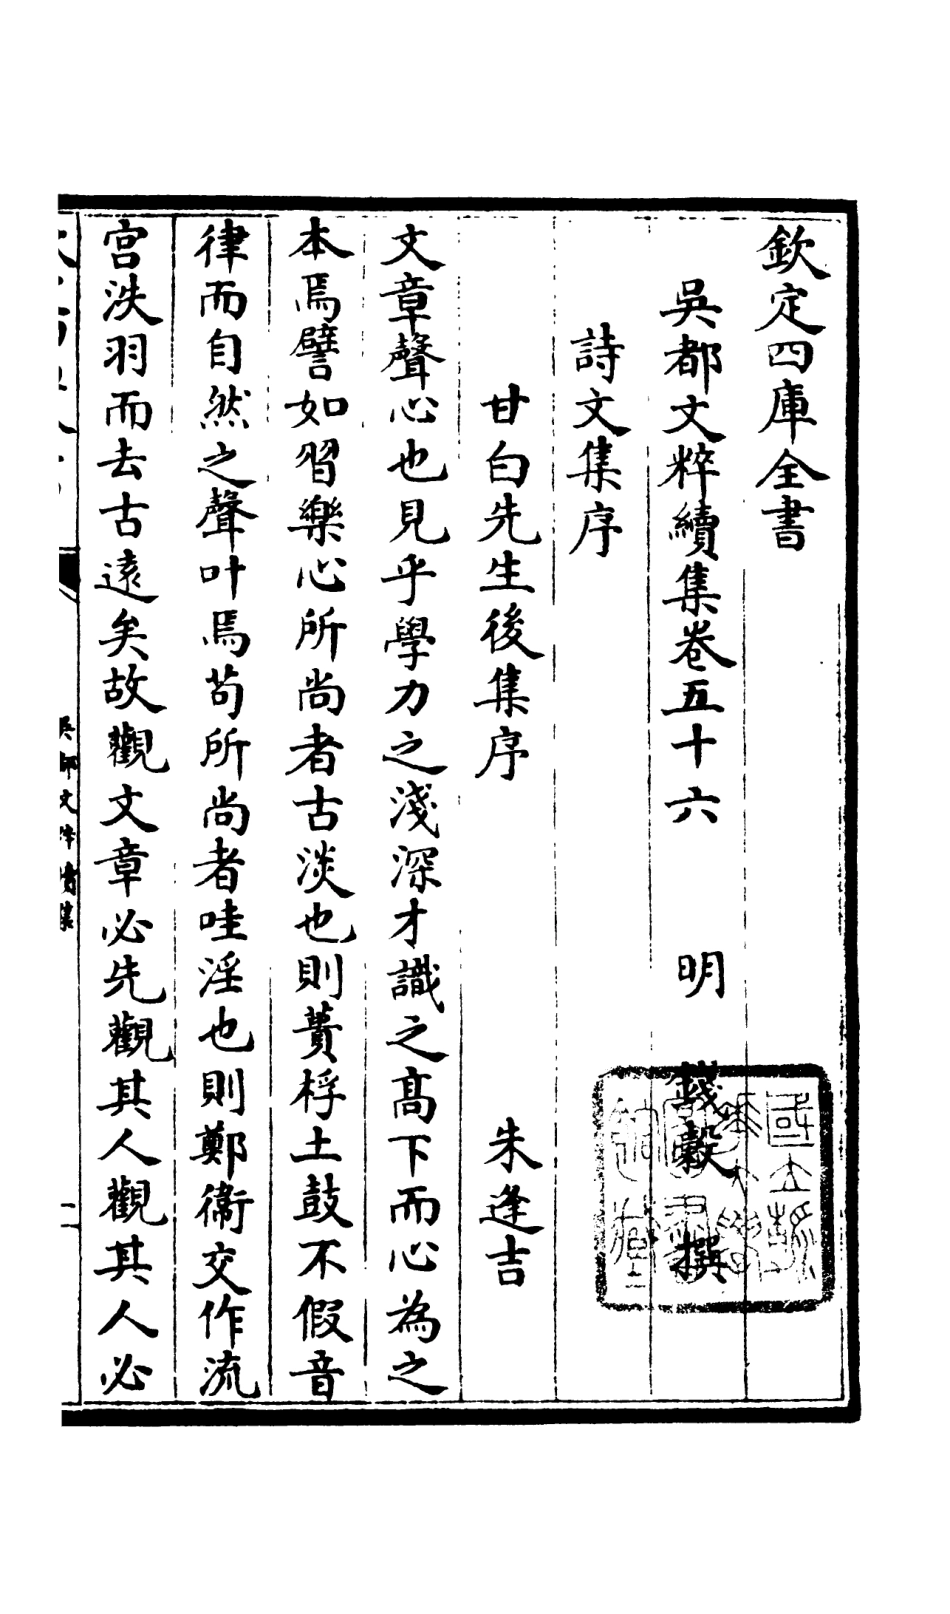 欽定四庫全書
吳都文粹續集卷五十六　明　錢穀　撰
詩文集序
甘白先生後集序　朱逢吉
文章聲心也見乎學力之淺深才識之髙下而心為之
本焉譬如習樂心所尚者古淡也則蕢桴土鼓不假音
律而自然之聲叶焉茍所尚者哇淫也則鄭衞交作流
宫泆羽而去古逺矣故觀文章必先觀其人觀其人必
吳都文粹續集